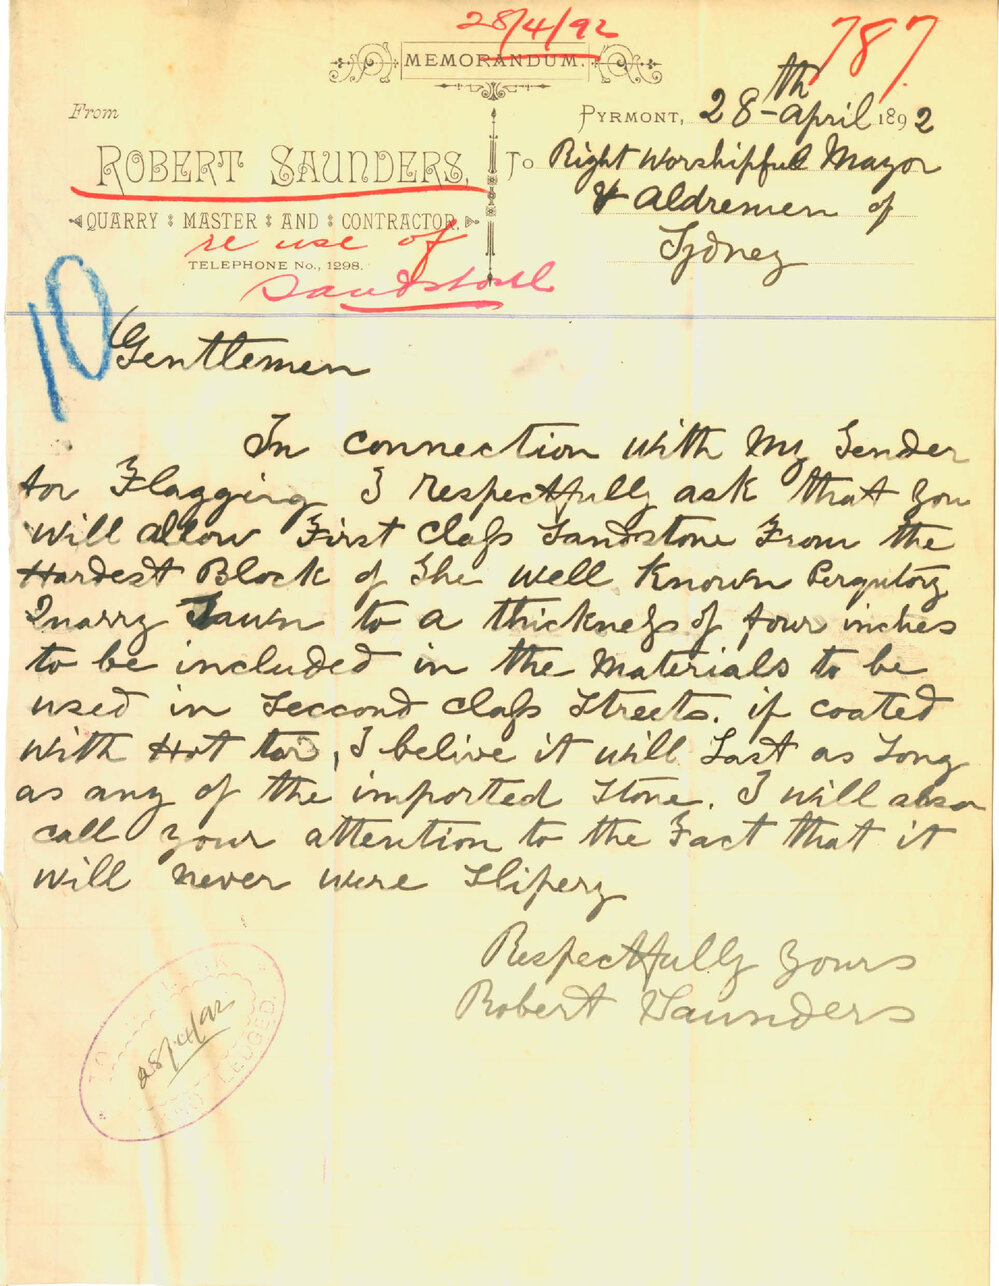 28/4/92
MEMORANDUM.
787
From
PYRMONT, 28th April 1892
ROBERT SAUNDERS,
To Right Worshipful Mayor
& Aldremen of
Sydney
QUARRY MASTER AND CONTRACTOR.
re use of
TELEPHONE No., 1298.
Sandstone
10
Gentlemen
In connection with My Tender
for Flagging I respectfully ask that you
will allow First Class Sandstone From the
Hardest Block of The well Known Pergutory
Quarry Sawn to a thickness of four inches
to be included in the Materials to be
used in Seccond Class Streets. if coated
with Hot tar, I belive it will Last as Long
as any of the imported Stone. I will also
call your attention to the Fact that it
will never were Slipery
Respectfully yours
Robert Saunders
TOWN CLERK
28/4/92